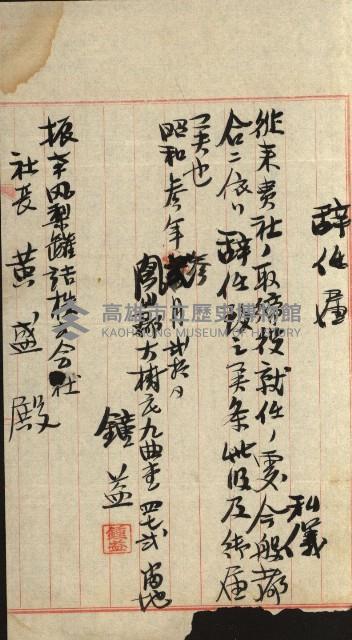 辞任届
私儀
従来貴社ノ取締役就任ノ處今般都
合ニ依リ辞任
候条此段及御届
候也
昭和参年参月弐拾日
鳳山郡大樹庄九曲堂四七弐番地
鐘益
鐘益
振南鳳梨罐詰株式会社
社長 黄盛殿
高雄市立歷史博物館
KAOHSIUNG MUSEUM OF HISTORY